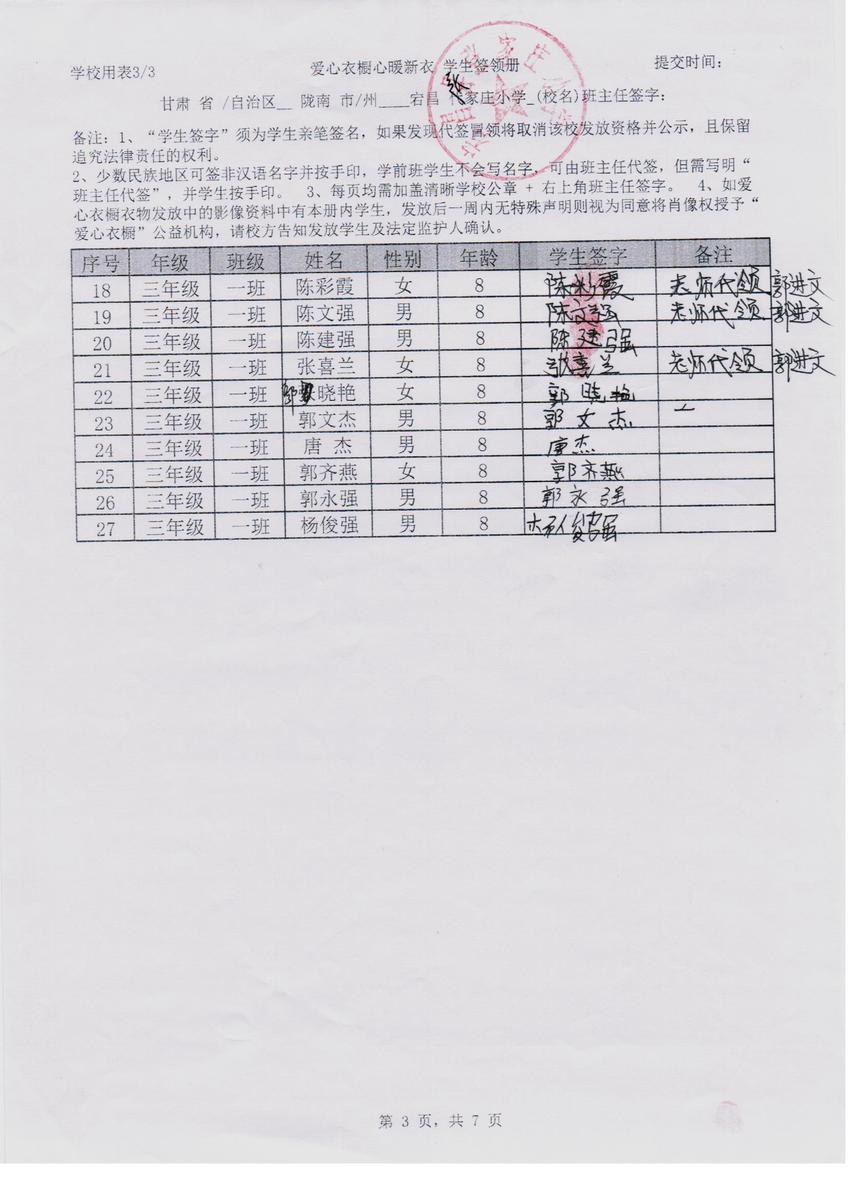 学校用表3/3
爱心衣橱心暖新衣 学生签领册
提交时间：
甘肃 省 /自治区__ 陇南 市/州____宕昌 张家庄小学_(校名)班主任签字：
备注：1、“学生签字”须为学生亲笔签名，如果发现代签冒领将取消该校发放资格并公示，且保留
追究法律责任的权利。
2、少数民族地区可签非汉语名字并按手印，学前班学生不会写名字，可由班主任代签，但需写明“
班主任代签”，并学生按手印。 3、每页均需加盖清晰学校公章 + 右上角班主任签字。 4、如爱
心衣橱衣物发放中的影像资料中有本册内学生，发放后一周内无特殊声明则视为同意将肖像权授予“
爱心衣橱”公益机构，请校方告知发放学生及法定监护人确认。
序号 年级 班级 姓名 性别 年龄 学生签字 备注
18 三年级 一班 陈彩霞 女 8 陈彩霞 老师代领 郭进文
19 三年级 一班 陈文强 男 8 陈文强 老师代领 郭进文
20 三年级 一班 陈建强 男 8 陈建强
21 三年级 一班 张喜兰 女 8 张喜兰 老师代领 郭进文
22 三年级 一班 郭晓艳 女 8 郭晓艳
23 三年级 一班 郭文杰 男 8 郭文杰
24 三年级 一班 唐 杰 男 8 唐杰
25 三年级 一班 郭齐燕 女 8 郭齐燕
26 三年级 一班 郭永强 男 8 郭永强
27 三年级 一班 杨俊强 男 8 杨俊强
第 3 页，共 7 页